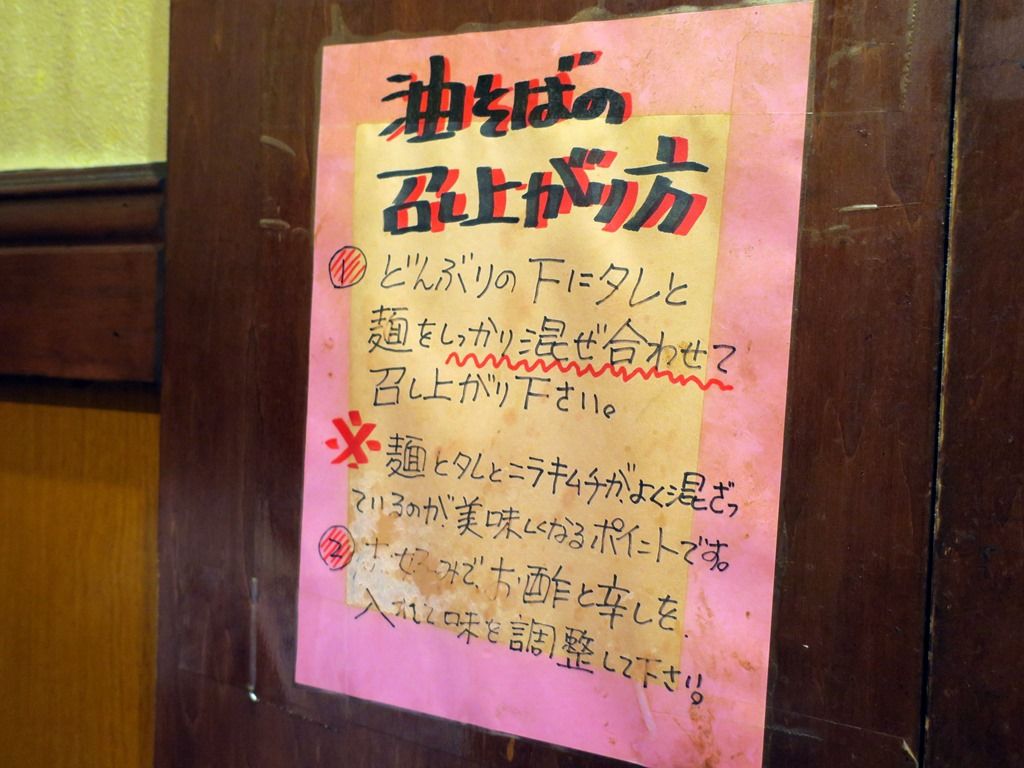 油そばの
召し上がり方
① どんぶりの下にタレと
麺をしっかり混ぜ合わせて
召し上がり下さい。
※ 麺とタレとニラキムチがよく混ざっ
ているのが美味しくなるポイントです。
② お好みで、お酢と辛しを
入れて味を調整して下さい。